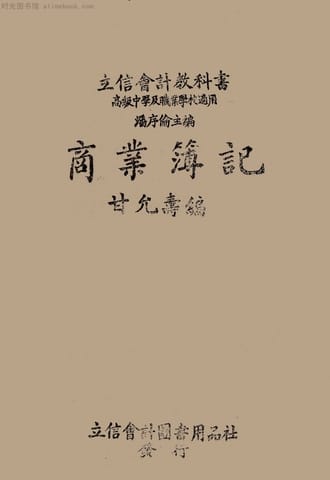 时光图书馆 alinebook.com
立信會計教科書
高級中學及職業學校適用
潘序倫主編
商業簿記
甘允壽編
立信會計圖書用品社
發行